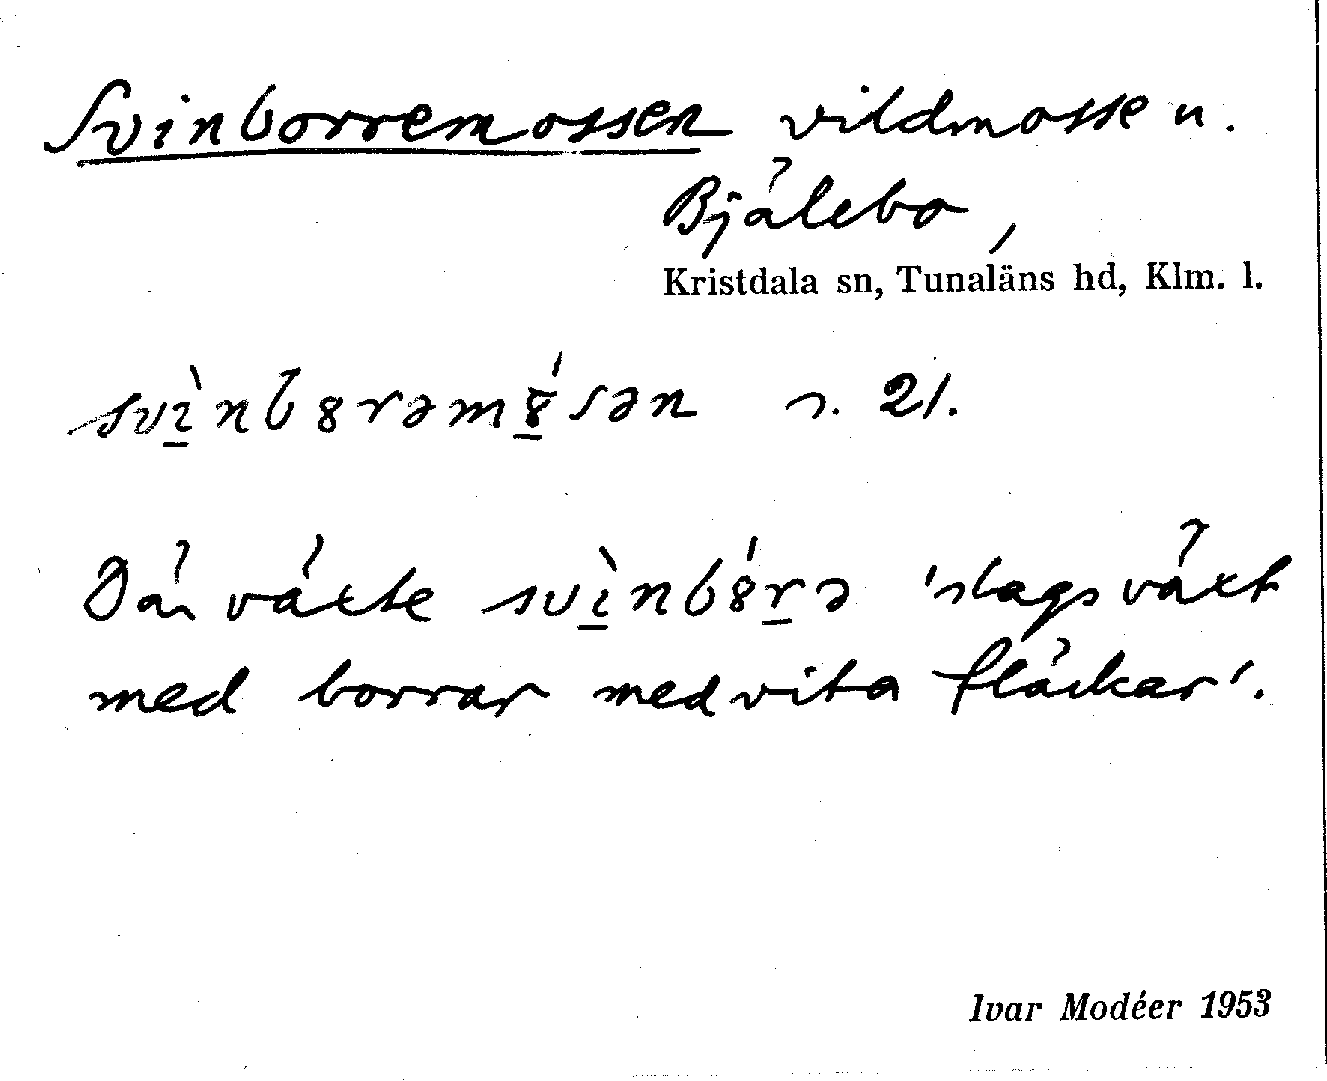 Svinborremossen vildmosse u.
Bjälebo,
Kristdala sn, Tunaläns hd, Klm. l.
svìnb8rəm8́sən s. 21.
Där växte svìnb8́rə 'slags växt
med borrar med vita fläckar'.
Ivar Modéer 1953